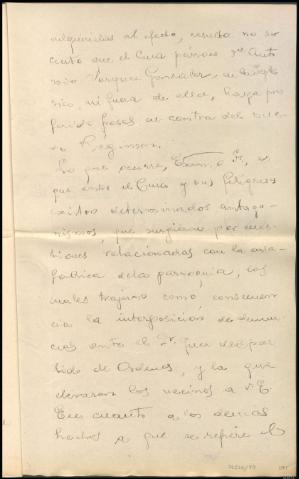 adquiridas al efecto, resulta no ser
cierto que el Cura párroco Dn Anto-
nio Vazquez Gonzalez,
ni fuera de ella, haya pro-
ferido frases en contra del
Regimen.
Lo que ocurre, Excmo Sr, es
que entre el Cura y sus feligreses
existen determinados antago-
nismos, que surgieron por cues-
tiones relacionadas con la
de la parroquia, los
cuales trajeron como consecuen-
cia la interposición de denun-
cias ante el Sr. Juez del par-
tido de Ordenes, y la que
elevaron los vecinos a V.E.
En cuanto a los demas
hechos a que se refiere el